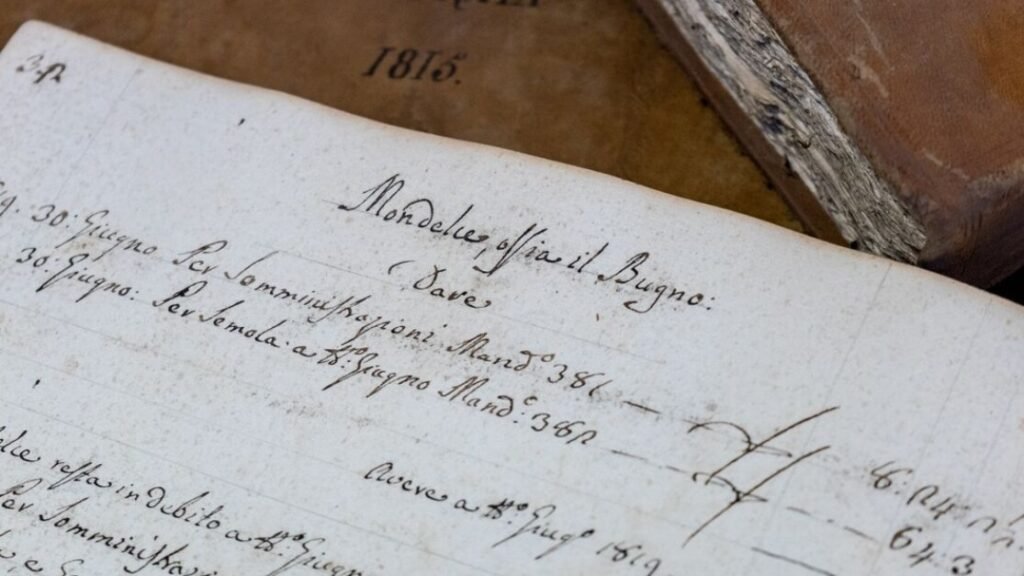 1815.
Mondelce, ossia il Bugno:
Dare
30: Giugno Per Somministrazioni Mand.º 386
30: Giugno: Per Semola a tt.º Giugno Mand.º: 382
64: 3
Avere a tt.º Giug.º 1819
resta in debito a tt.º Giugno
Per Somministrazi